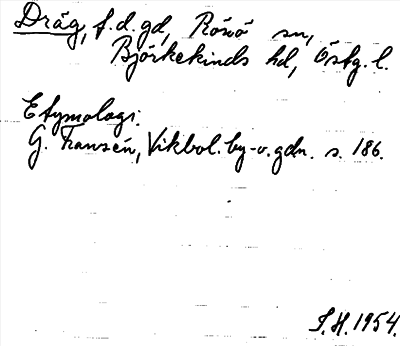 Dräg, f.d. gd, Rönö sn,
Björkekinds hd, Östg. l.
Etymologi.
G. Franzén, Vikbol. by- o. gdn. s. 186.
S.H. 1954.